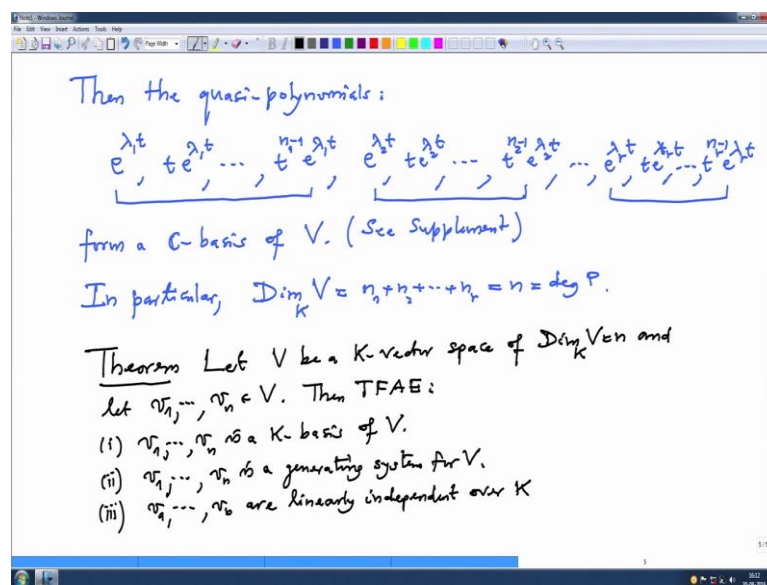 Note1 - Windows Journal
File Edit View Insert Actions Tools Help
Page Width
Then the quasi-polynomials:
e^{λ₁t}, te^{λ₁t}, ..., t^{n₁-1}e^{λ₁t}, e^{λ₂t}, te^{λ₂t}, ..., t^{n₂-1}e^{λ₂t}, ..., e^{λ_r t}, te^{λ_r t}, ..., t^{n_r-1}e^{λ_r t}
form a C-basis of V. (See Supplement)
In particular, Dim_K V = n₁+n₂+...+n_r = n = deg P.
Theorem Let V be a K-vector space of Dim_K V=n and
let v₁, ..., v_n ∈ V. Then TFAE:
(i) v₁, ..., v_n is a K-basis of V.
(ii) v₁, ..., v_n is a generating system for V.
(iii) v₁, ..., v_n are linearly independent over K
5/5
5
16:12